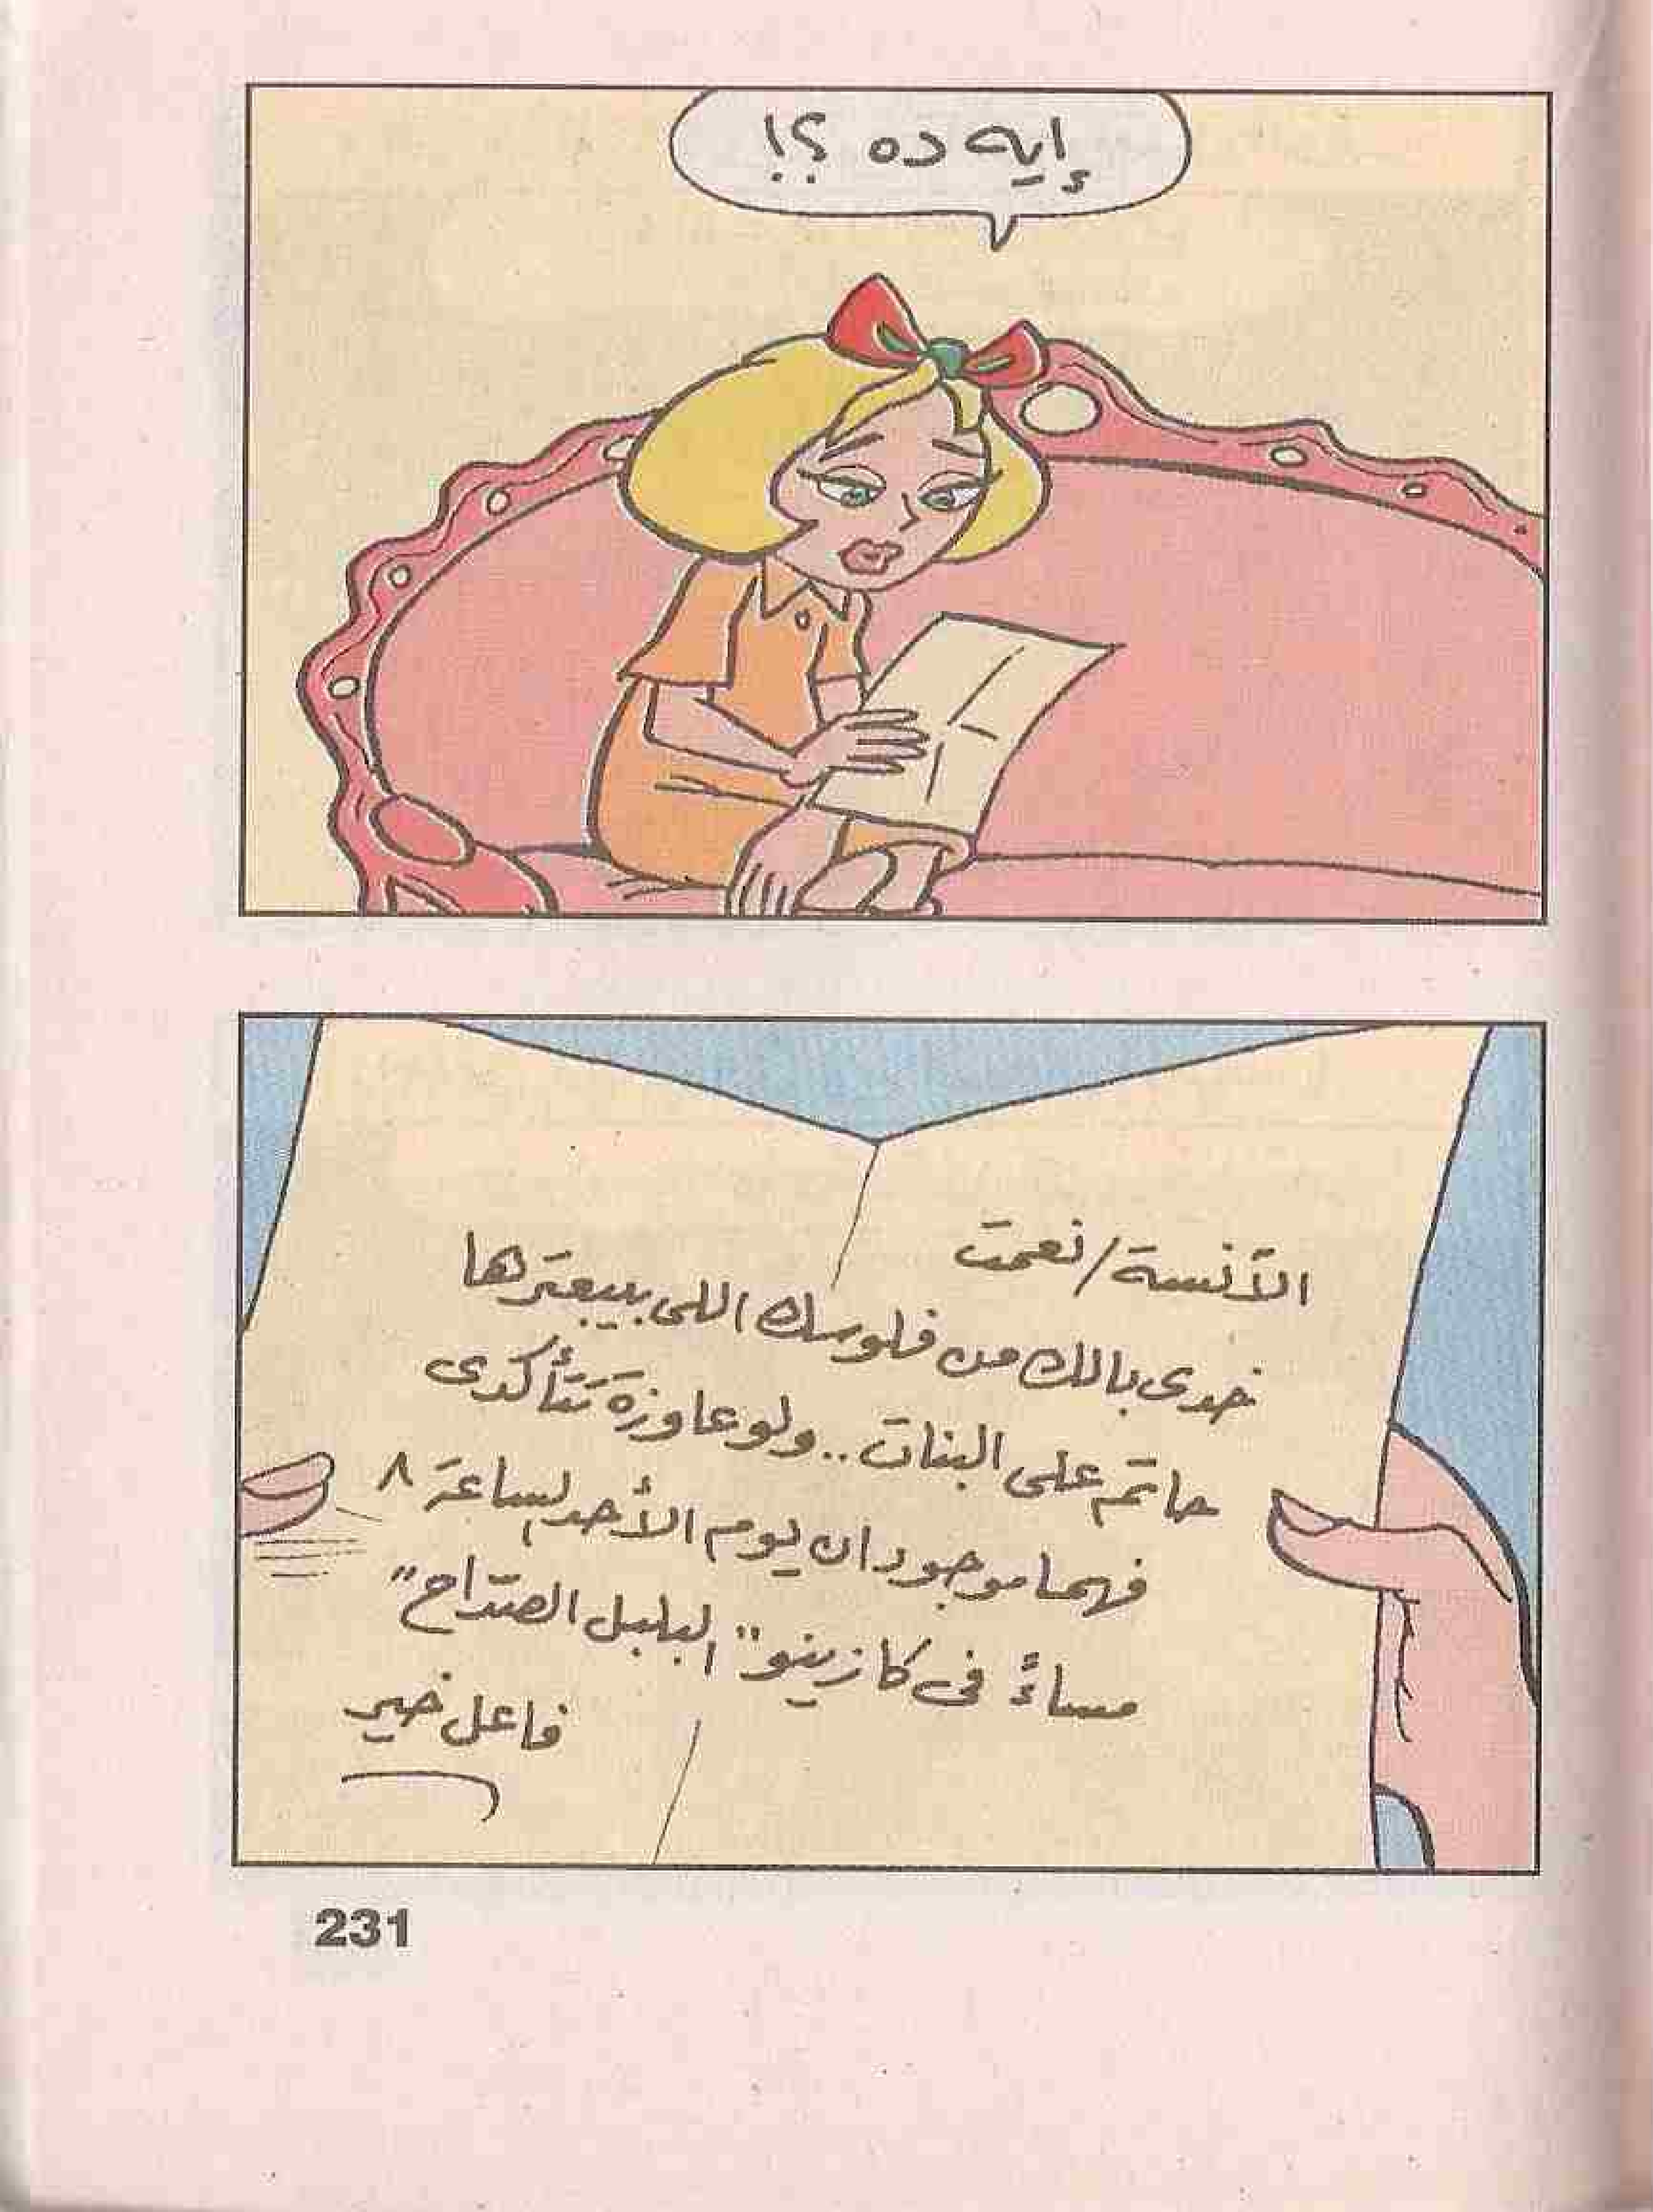 إيه ده ؟!
الآنسة / نعمت
خدى بالك من فلوسك اللى بيبعترها
حاتم على البنات .. ولو عاوزة تتأكدى
فهما موجودان يوم الأحد الساعة ٨
مساءً فى كازينو "البلبل الصدّاح"
فاعل خير
231